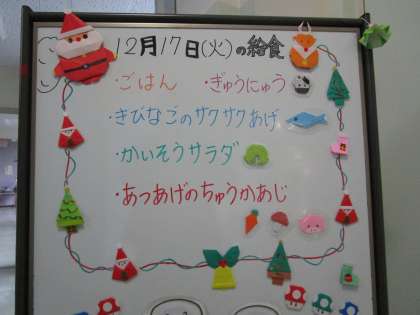 12月17日(火)の給食
・ごはん ・ぎゅうにゅう
・きびなごのサクサクあげ
・かいそうサラダ
・あつあげのちゅうかあじ